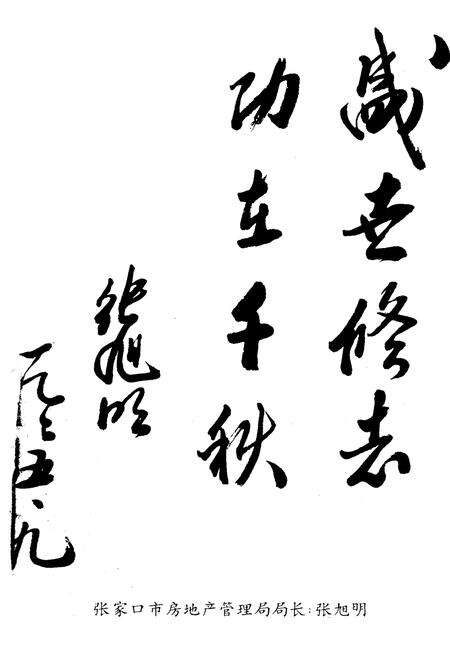 盛世修志
功在千秋
张旭明
五、九
张家口市房地产管理局局长:张旭明